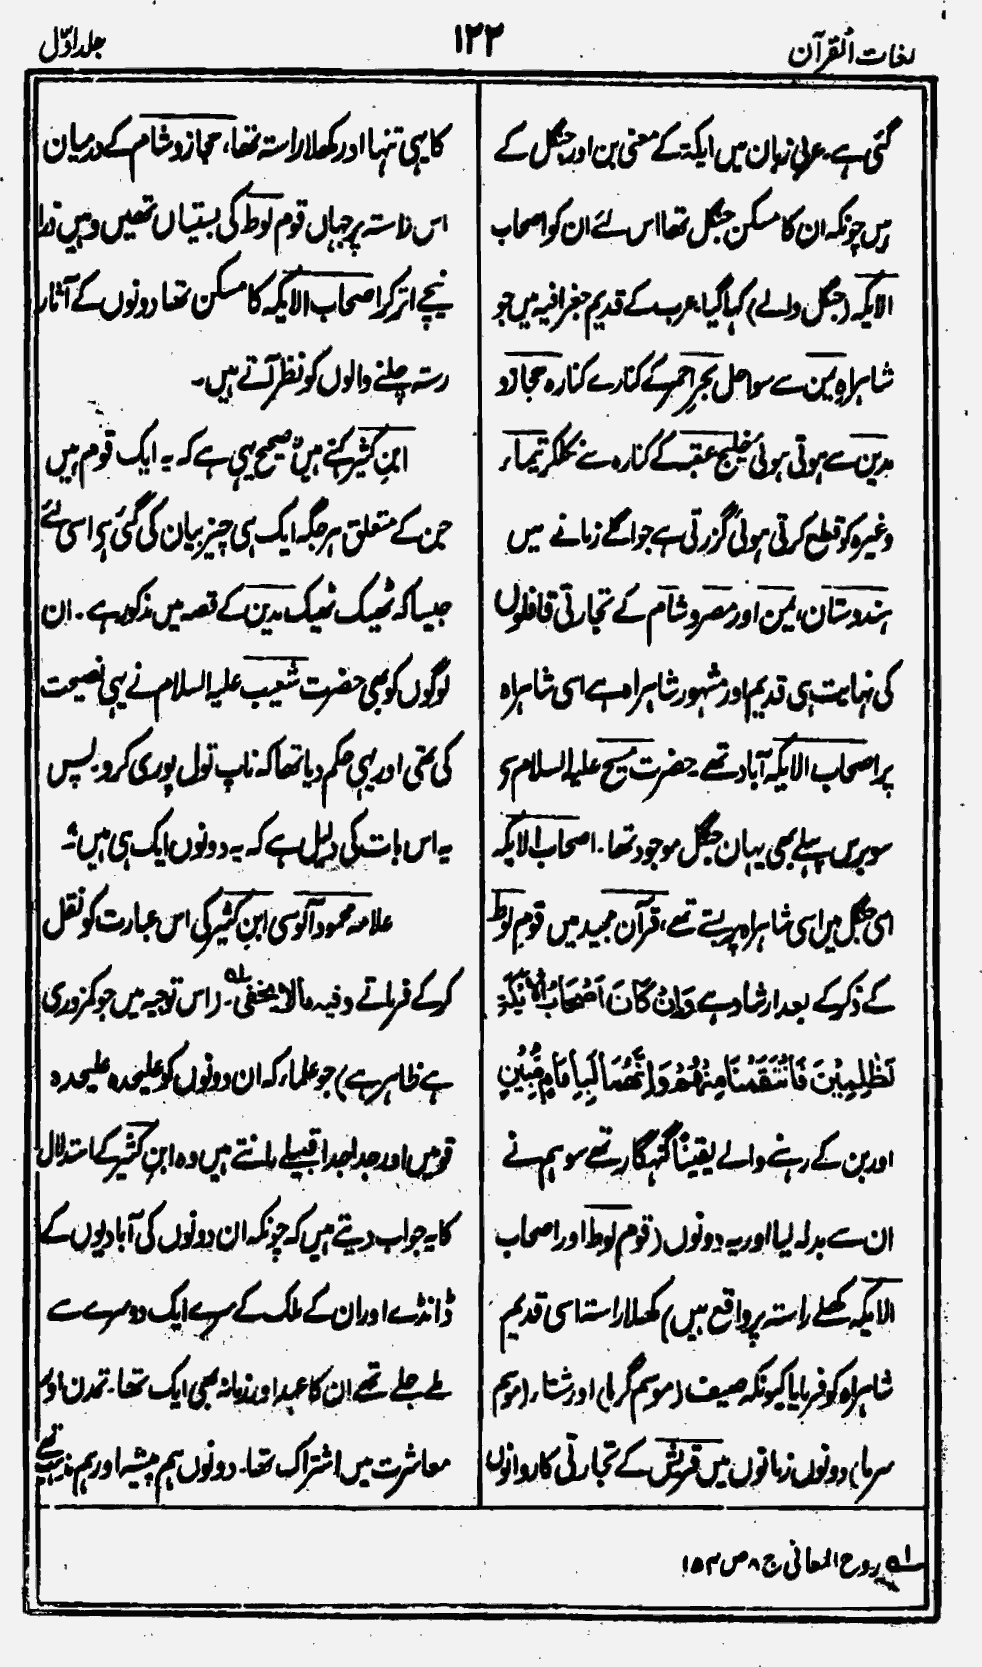 لغات القرآن
۱۲۲
جلد اوّل
گئی ہے۔ عربی زبان میں ایکۃ کے معنی بن اور جنگل کے
ہیں چونکہ ان کا مسکن جنگل تھا اس لئے ان کو اصحاب
الایکہ (جنگل والے) کہا گیا۔ عرب کے قدیم جغرافیہ میں جو
شاہراہِ یمن سے سواحل بحرِ احمر کے کنارے کنارہ حجاز و
مدین سے ہوتی ہوئی خلیج عقبہ کے کنارہ سے نکلکر تیماء
وغیرہ کو قطع کرتی ہوئی گزرتی ہے جو اگلے زمانے میں
ہندوستان، یمن اور مصر و شام کے تجارتی قافلوں
کی نہایت ہی قدیم اور مشہور شاہراہ ہے اسی شاہراہ
پر اصحاب الایکہ آباد تھے۔ حضرت مسیح علیہ السلام سے
سو برس پہلے بھی یہاں جنگل موجود تھا۔ اصحاب الایکہ
اسی جنگل میں اسی شاہراہ پر بستے تھے، قرآن مجید میں قوم لوط
کے ذکر کے بعد ارشاد ہے وَاِنْ كَانَ اَصْحَابُ الْاَيْكَةِ
لَظٰلِمِيْنَ فَانْتَقَمْنَا مِنْهُمْ وَاِنَّهُمَا لَبِاِمَامٍ مُّبِيْنٍ
اور بن کے رہنے والے یقیناً گنہگار تھے سو ہم نے
ان سے بدلہ لیا اور یہ دونوں (قوم لوط اور اصحاب
الایکہ کھلے راستہ پر واقع ہیں) کھلا راستا اسی قدیم
شاہراہ کو فرمایا کیونکہ صیف (موسم گرما) اور شتاء (موسم
سرما) دونوں زمانوں میں قریش کے تجارتی کاروانوں
کا یہی تنہا اور کھلا راستہ تھا، حجاز و شام کے درمیان
اس راستہ پر جہاں قوم لوط کی بستیاں تھیں وہیں ذرا
نیچے اتر کر اصحاب الایکہ کا مسکن تھا دونوں کے آثار
رستہ چلنے والوں کو نظر آتے ہیں۔
ابن کثیر کہتے ہیں صحیح یہی ہے کہ یہ ایک قوم ہیں
جن کے متعلق ہر جگہ ایک ہی چیز بیان کی گئی ہے اسی لئے
جیسا کہ ٹھیک ٹھیک مدین کے قصہ میں مذکور ہے۔ ان
لوگوں کو بھی حضرت شعیب علیہ السلام نے یہی نصیحت
کی تھی اور یہی حکم دیا تھا کہ ناپ تول پوری کرو۔ پس
یہ اس بات کی دلیل ہے کہ یہ دونوں ایک ہی ہیں"۔
علامہ محمود آلوسی ابن کثیر کی اس عبارت کو نقل
کر کے فرماتے وفیہ مالا یخفی لہ۔ (اس توجیہ میں جو کمزوری
ہے ظاہر ہے) جو علماء کہ ان دونوں کو علیحدہ علیحدہ
قومیں اور جدا جدا قبیلے مانتے ہیں وہ ابن کثیر کے استدلال
کا یہ جواب دیتے ہیں کہ چونکہ ان دونوں کی آبادیوں کے
ڈانڈے اور ان کے ملک کے سرے ایک دوسرے سے
ملے جلے تھے ان کا عہد اور زمانہ بھی ایک تھا۔ تمدن اور
معاشرت میں اشتراک تھا۔ دونوں ہم پیشہ اور ہم مذہب تھے
لہ روح المعانی ج ۸ ص ۱۵۳